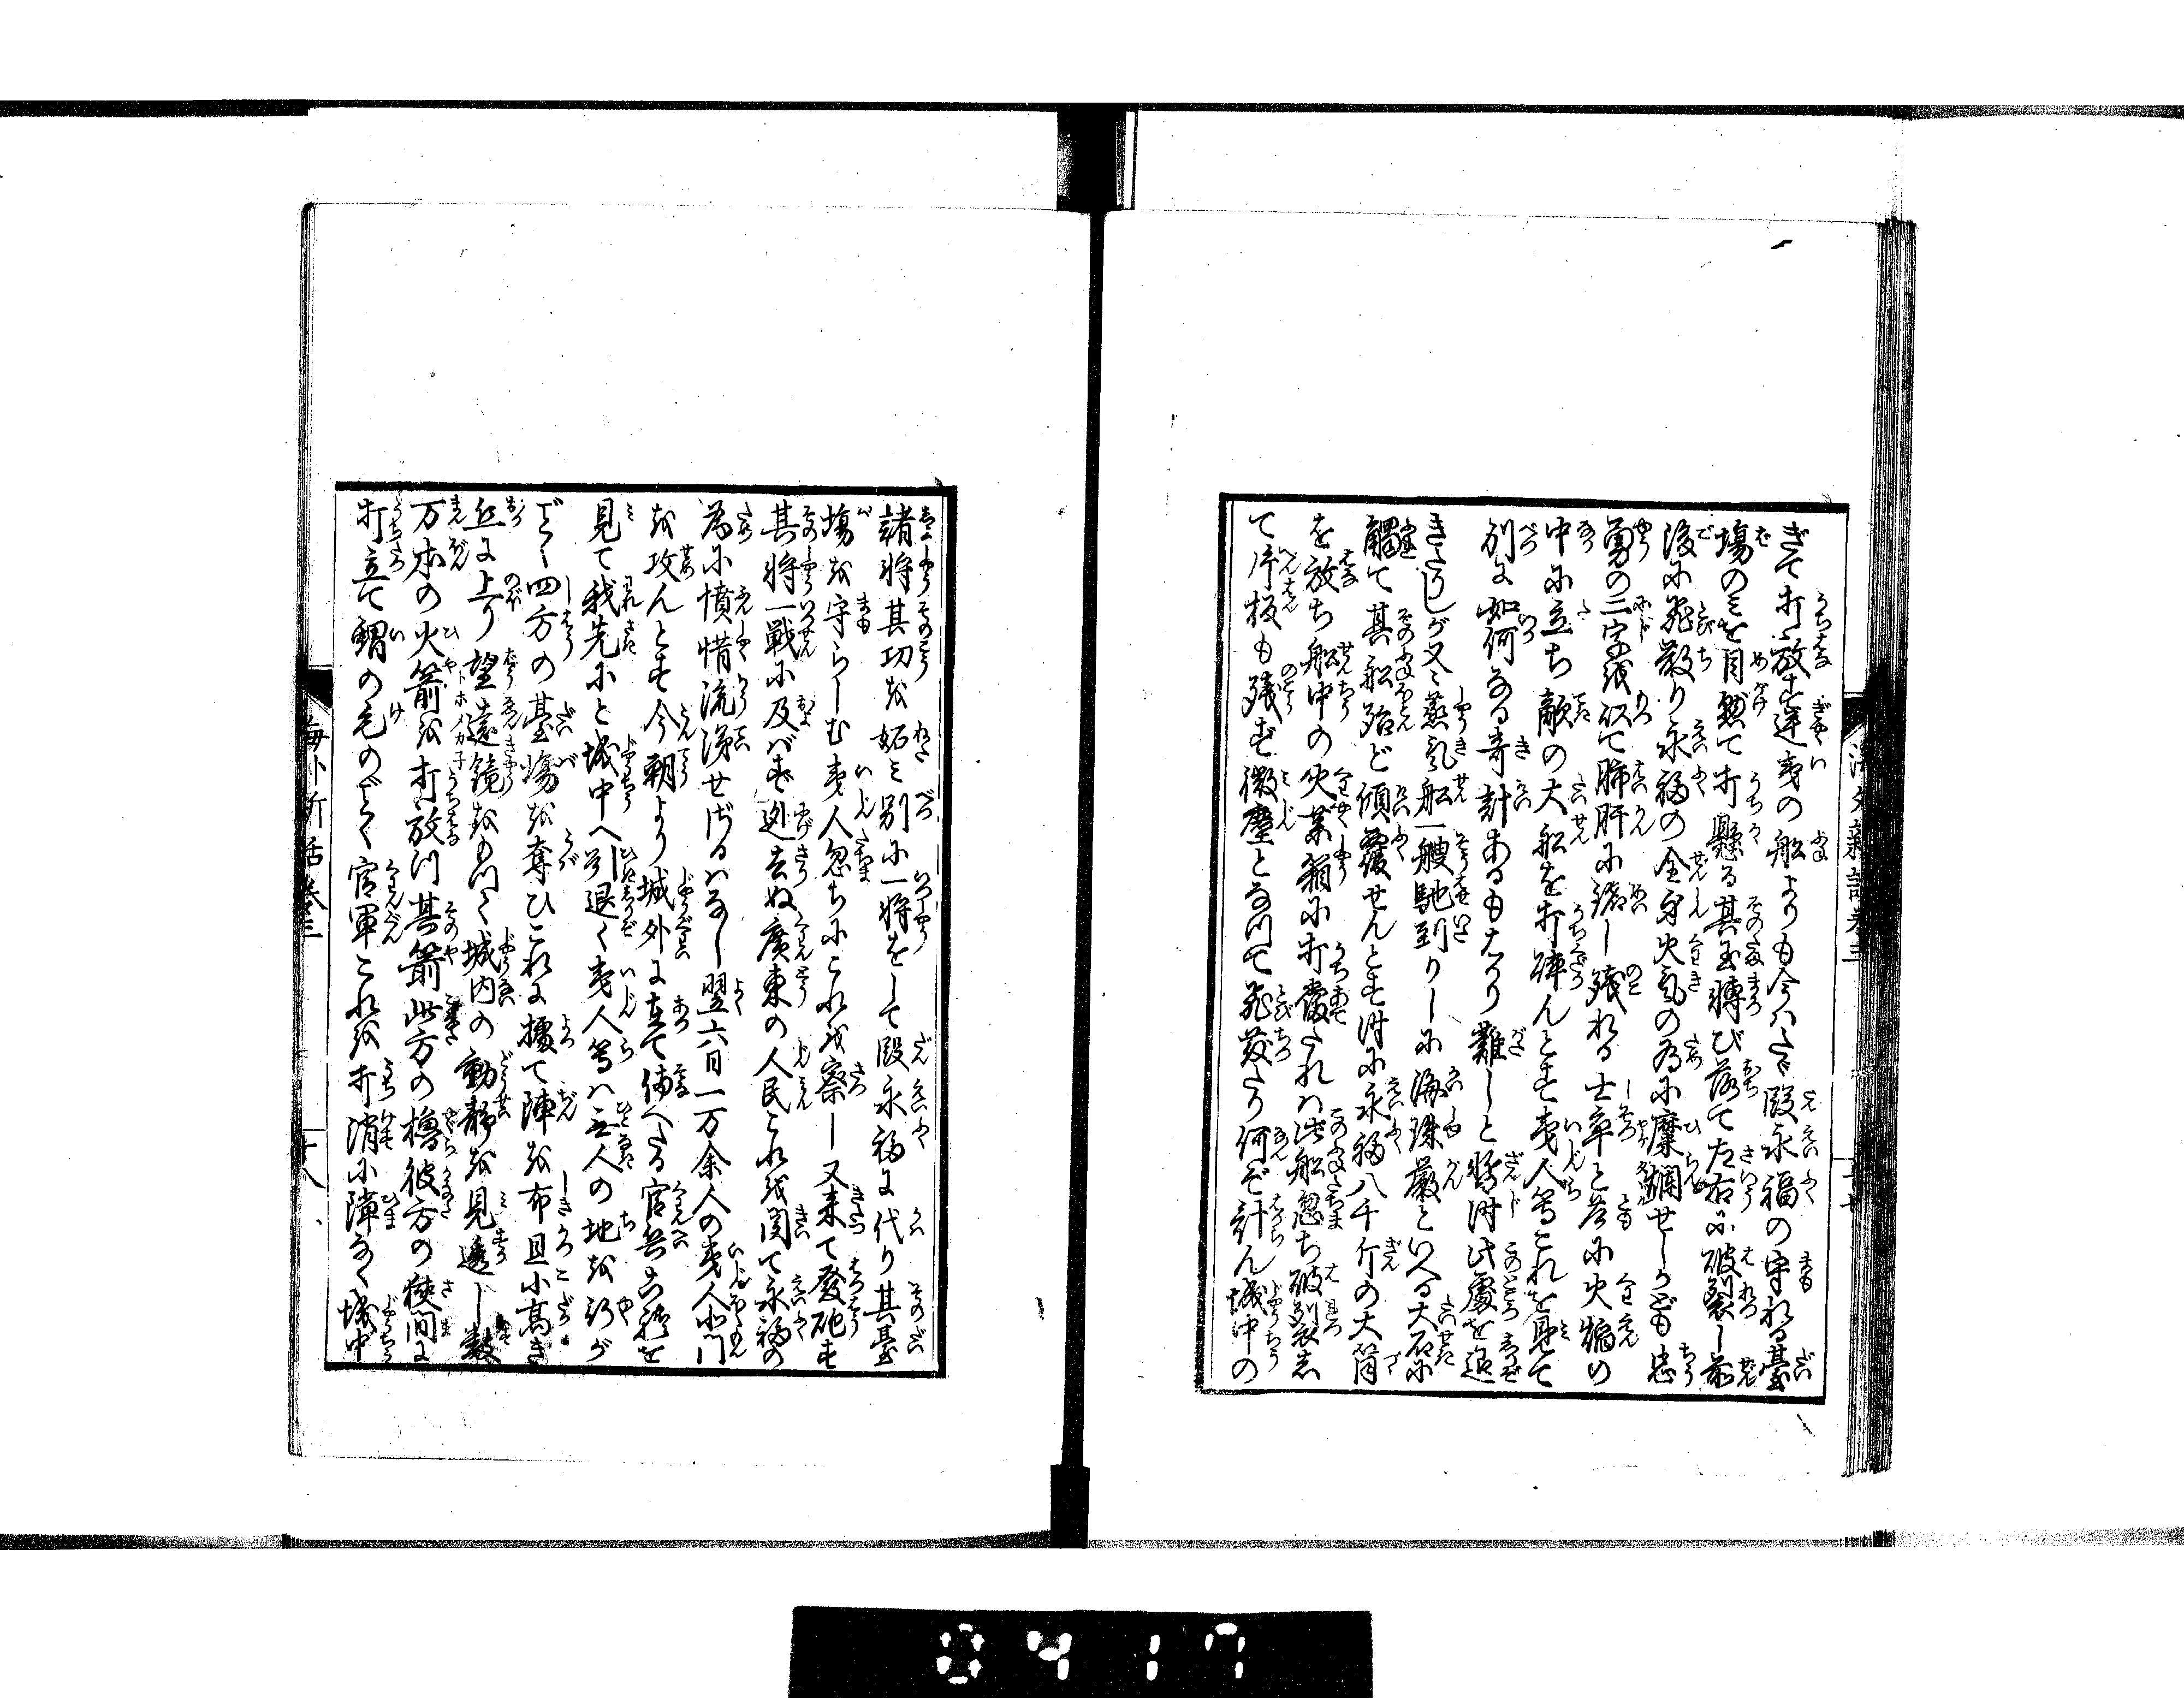 ぎて打放す逆夷の船よりも今はたゞ段永福の守れる臺
塲のミを目懸て打懸る其玉轉び落て左右に破裂し前
後に飛散り永福の全身火気の為に糜爛せしかども忠
勇の二字を以て肺肝に銘し残れる士卒と共に火焔の
中に立ち敵の大船を打碎んとす夷人等これを見て
別に如何なる奇計あるも計り難しと暫時此處を退
きたりしが又々蒸気船一艘馳到りしに海珠嚴といへる大石に
觸て其船殆ど傾覆せんとす時に永福八千斤の大筒
を放ち船中の火薬箱に打當たれハ此船忽ち破裂し
て片板も残ず微塵となつて飛散たり何ぞ計ん城中の
諸将其功を妬ミ別に一将をして段永福に代り其臺
塲を守らしむ夷人忽ちにこれを察し又来て發砲す
其将一戰に及バず迯去ぬ廣東の人民これを聞て永福の
為に憤惜流涕せざるハなし翌六日一万余人の夷人北門
を攻んとす今朝より城外に在て備へたる官兵共穂を
見て我先にと城中へ引退く夷人等ハ無人の地を行が
ごとく四方の臺塲を奪ひこれに據て陣を布且小高き
丘に上り望遠鏡をもつて城内の動静を見透し數
万本の火箭を打放つ其箭此方の櫓彼方の狭間に
打立て蝟の毛のごとく官軍これを打消に障なく城中
海外新話巻三
十八
0417